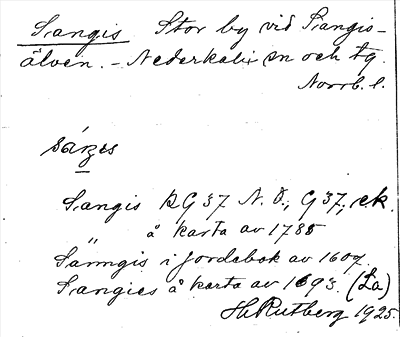 Sangis Stor by vid Sangis-
älven. - Nederkalix sn och tg.
Norrb. l.
Sangis RG 37 N.O., G 37, ek.
å karta av 1785
Sänngis i jordebok av 1607.
Sangies å karta av 1693. (La)
H Rutberg 1925.